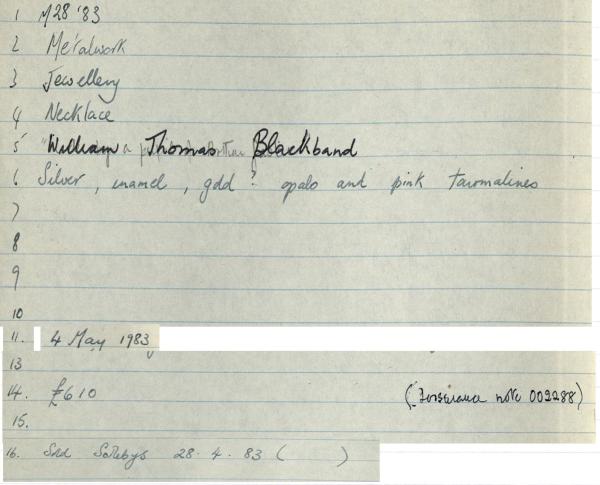 1 M28 '83
2 Metalwork
3 Jewellery
4 Necklace
5 William Thomas Blackband
6 Silver, enamel, gold? opals and pink tourmalines
7
8
9
10
11. 4 May 1983
13
14. £610 (Insurance note 009288)
15.
16. Sold Sothebys 28.4.83 ( )